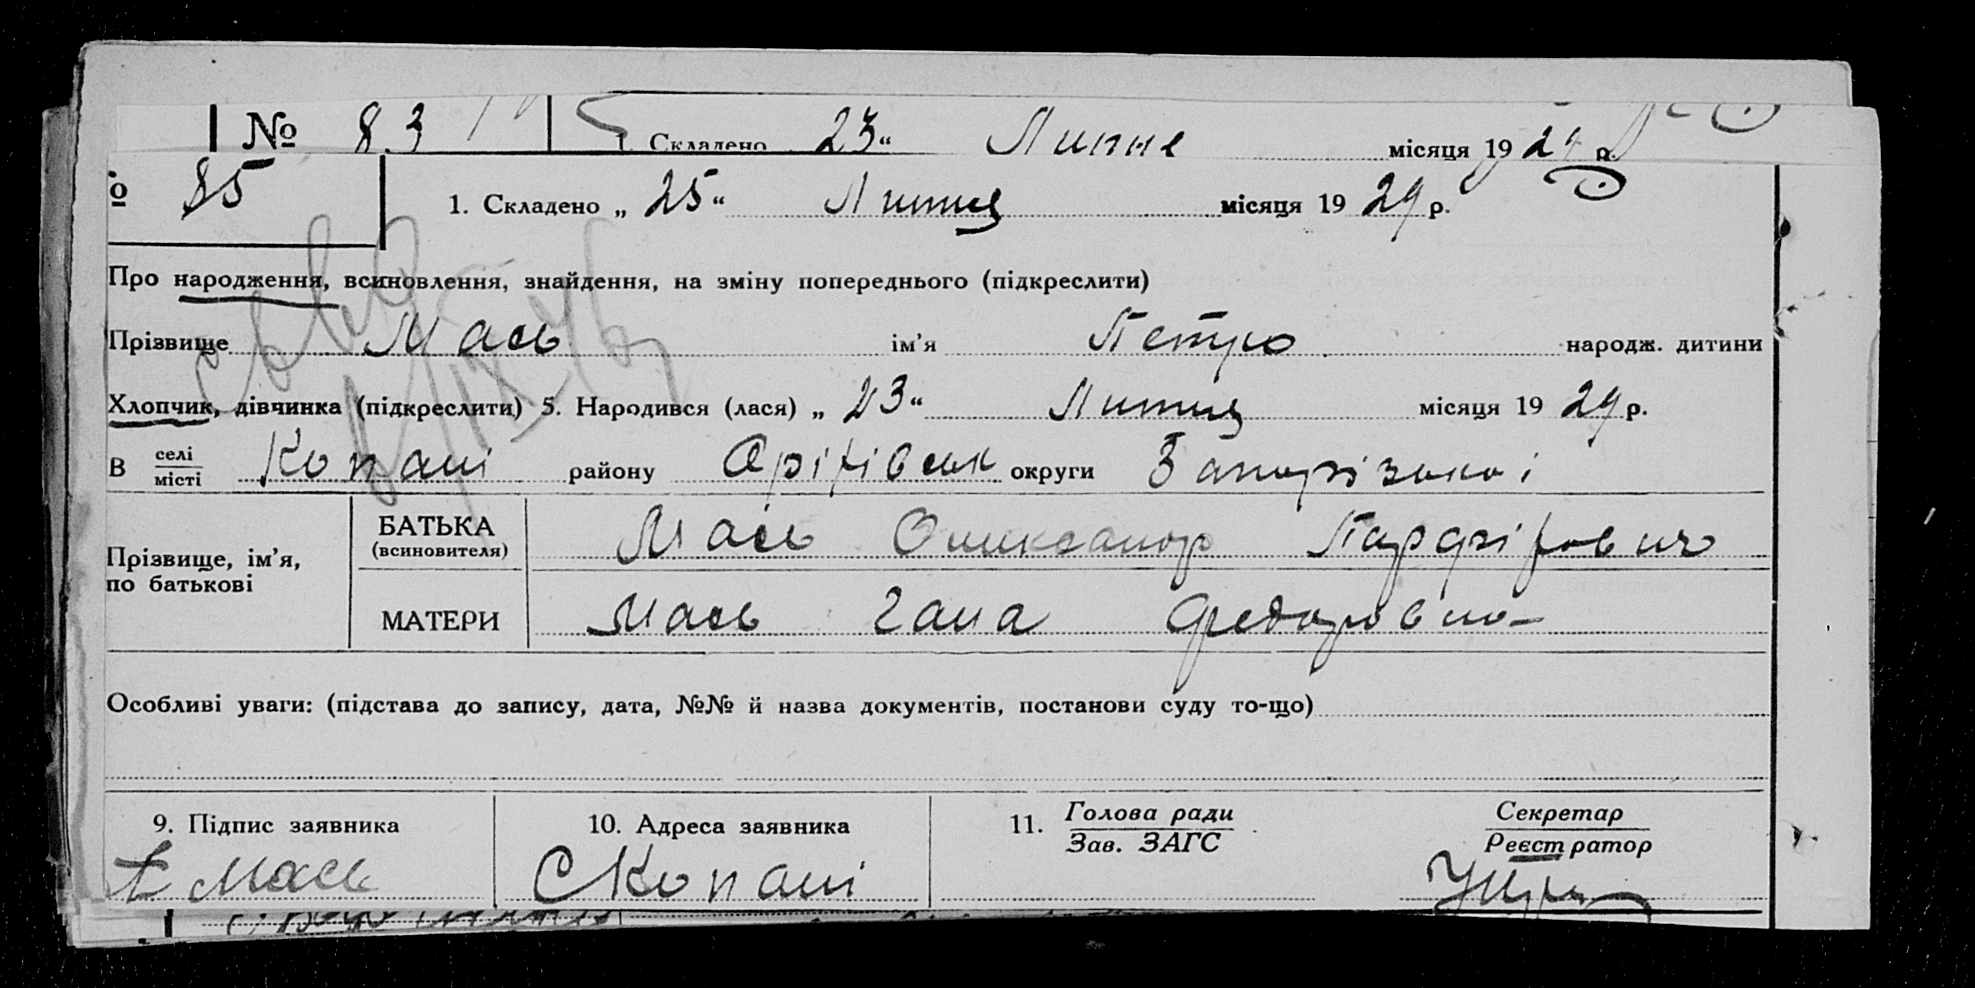 № 83 1. Складено 23“ Липне місяця 1929 р.
85 1. Складено „ 25“ Липня місяця 1929 р.
Про народження, всиновлення, знайдення, на зміну попереднього (підкреслити)
Прізвище Мась ім’я Петро народж. дитини
Хлопчик, дівчинка (підкреслити) 5. Народився (лася) „ 23“ Липня місяця 1929 р.
В селі
місті Копані району Оріхівськ округи Запорізькоі
Прізвище, ім’я,
по батькові
БАТЬКА
(всиновителя)
Мась Олександр Парфірович
МАТЕРИ Мась Гана Федоровно
Особливі уваги: (підстава до запису, дата, №№ й назва документів, постанови суду то-що)
9. Підпис заявника 10. Адреса заявника 11. Голова ради
Зав. ЗАГС Секретар
Реєстратор
Мась С Копані